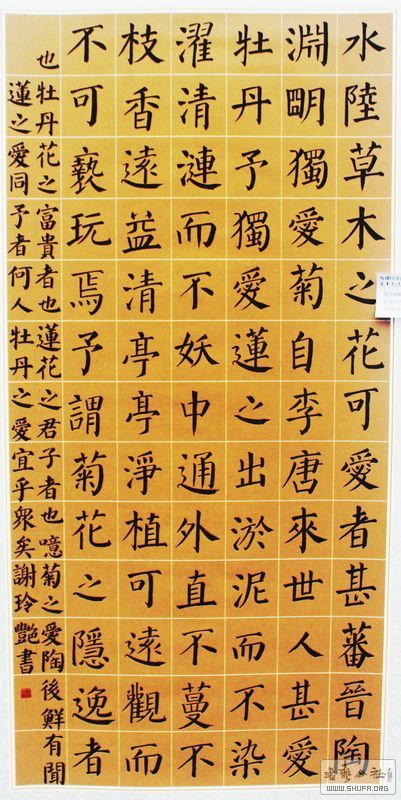 水陸草木之花可愛者甚蕃晉陶
淵明獨愛菊自李唐來世人甚愛
牡丹予獨愛蓮之出淤泥而不染
濯清漣而不妖中通外直不蔓不
枝香遠益清亭亭淨植可遠觀而
不可褻玩焉予謂菊花之隱逸者
也牡丹花之富貴者也蓮花之君子者也噫菊之愛陶後鮮有聞
蓮之愛同予者何人牡丹之愛宜乎衆矣謝玲艷書
WWW.SHUFA.ORG